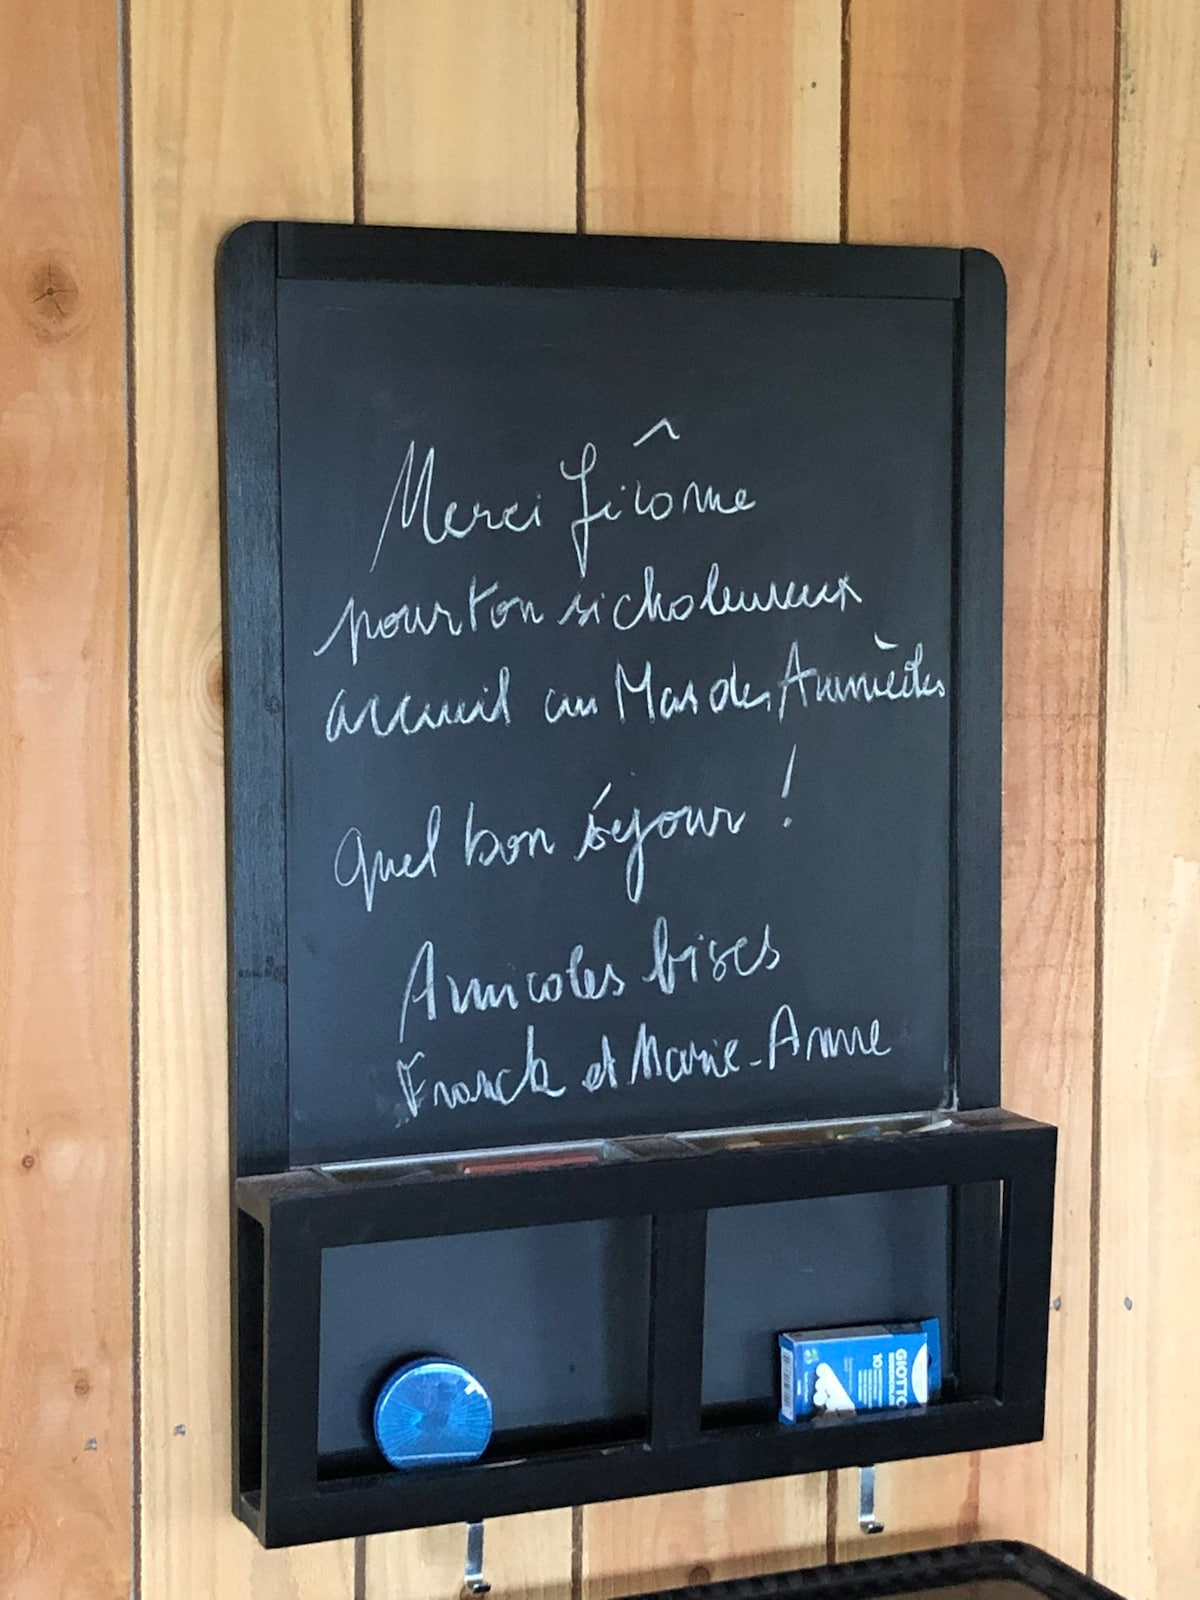 Merci Jérôme
pour ton si chaleureux
accueil au Mas des
Quel bon séjour !
Amicales bises
Franck et Marie-Anne
GIOTTO
10